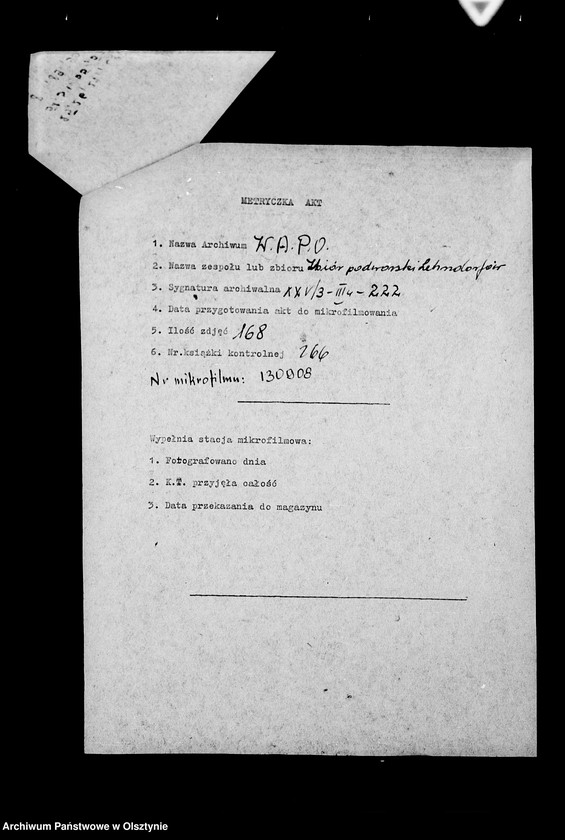 METRYCZKA AKT
1. Nazwa Archiwum W.A.P.O.
2. Nazwa zespołu lub zbioru Zbiór podworski Lehndorfów
3. Sygnatura archiwalna XXV/3-III4-222
4. Data przygotowania akt do mikrofilmowania
5. Ilość zdjęć 168
6. Nr.książki kontrolnej 266
Nr mikrofilmu: 130908
Wypełnia stacja mikrofilmowa:
1. Fotografowano dnia
2. K.T. przyjęła całość
3. Data przekazania do magazynu
Archiwum Państwowe w Olsztynie